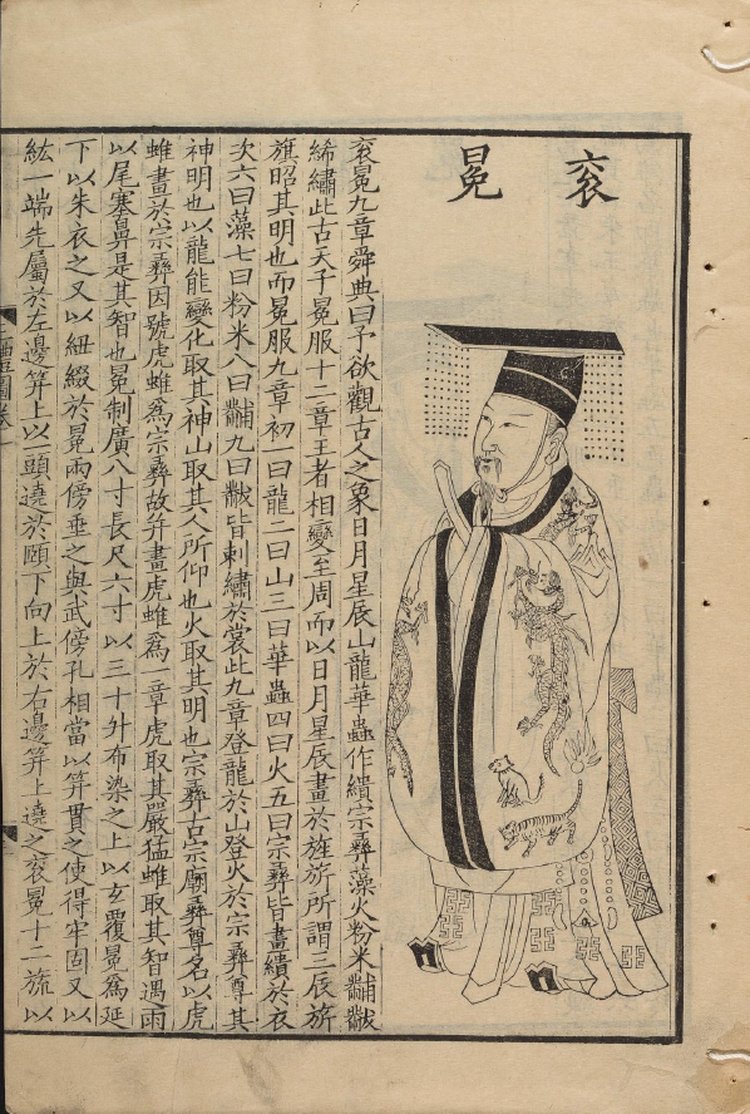 衮冕
衮冕九章舜典曰予欲觀古人之象日月星辰山龍華蟲作繢宗彝藻火粉米黼黻
絺繡此古天子冕服十二章王者相變至周而以日月星辰畫於旌旂所謂三辰旂
旗昭其明也而冕服九章初一曰龍二曰山三曰華蟲四曰火五曰宗彝皆畫繢於衣
次六曰藻七曰粉米八曰黼九曰黻皆刺繡於裳此九章登龍於山登火於宗彝尊其
神明也以龍能變化取其神山取其人所仰也火取其明也宗彝古宗廟彝尊名以虎
蜼畫於宗彝因號虎蜼爲宗彝故并畫虎蜼爲一章虎取其嚴猛蜼取其智遇雨
以尾塞鼻是其智也冕制廣八寸長尺六寸以三十升布染之上以玄覆冕爲延
下以朱衣之又以紐綴於冕兩傍垂之與武傍孔相當以笄貫之使得牢固又以
紘一端先屬於左邊笄上以一頭遶於頤下向上於右邊笄上遶之衮冕十二旒以